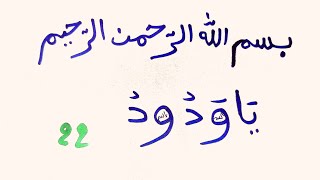 بسم الله الرّحمن الرّحیم
یَا وَدُودُ
22